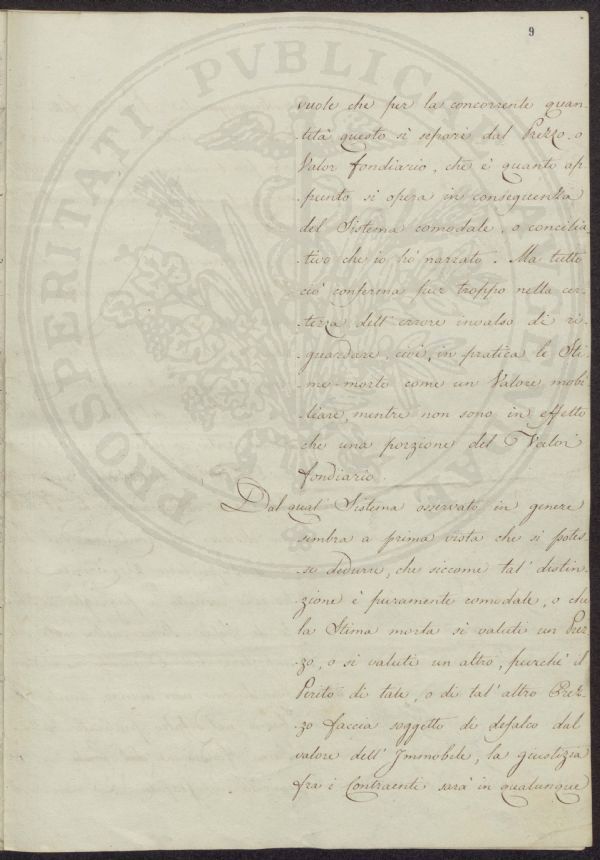 9
vuole che per la concorrente quan-
-tità questo si separi dal Prezzo, o
Valor fondiario, che è quanto ap-
-punto si opera in conseguenza
del Sistema comodale, o concilia-
-tivo che io hò narrato. Ma tutto
ciò conferma pur troppo nella cer-
-tezza dell'errore invalso di ri-
-guardare, cioè, in pratica le Sti-
-me-morte come un Valore mobi-
-liare, mentre non sono in effetto
che una porzione del Valor
fondiario.
Dal qual Sistema osservato in genere
simbra a prima vista che si potes-
-se dedurre, che siccome tal distin-
-zione è puramente comodale, o che
la Stima morta si valuti un Prez-
-zo, o si valuti un altro, purchè il
Perito di tale, o di tal'altro Prez-
-zo faccia soggetto di defalco dal
valore dell'Immobile, la giustizia
fra i Contraenti sarà in qualunque
PROSPERITATI PVBLICAE